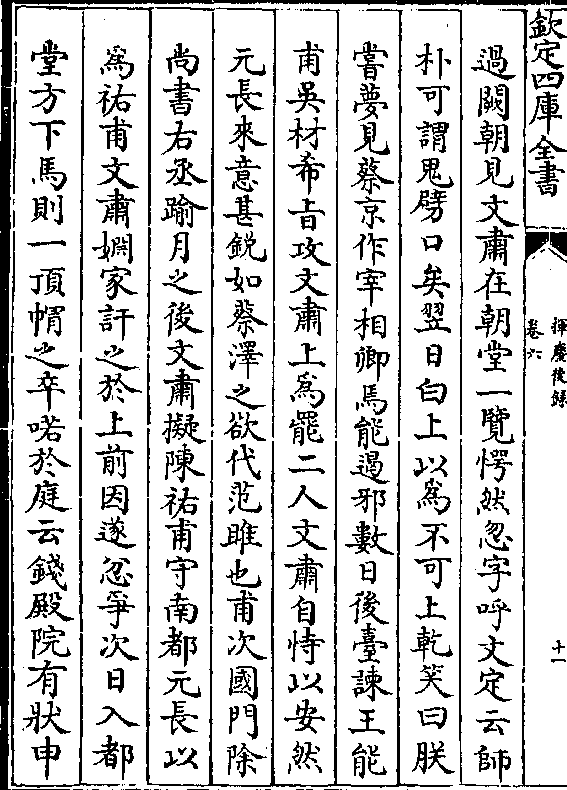 欽定四庫全書
揮麈後錄
卷六
十一
過闕朝見文肅在朝堂一覽愕然忽字呼文定云師
朴可謂鬼劈口矣翌日白上以為不可上乾笑曰朕
嘗夢見蔡京作宰相卿焉能遏邪數日後臺諫王能
甫吳材希㫖攻文肅上為罷二人文肅自恃以安然
元長來意甚銳如蔡澤之欲代范雎也甫次國門除
尚書右丞踰月之後文肅擬陳祐甫守南都元長以
為祐甫文肅婣家訐之於上前因遂忿爭次日入都
堂方下馬則一頂帽之卒喏於庭云錢殿院有狀申